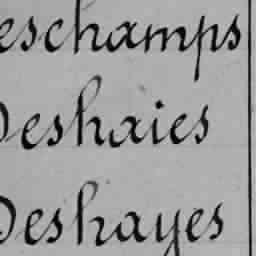 eschamps
Deshaies
Deshayes